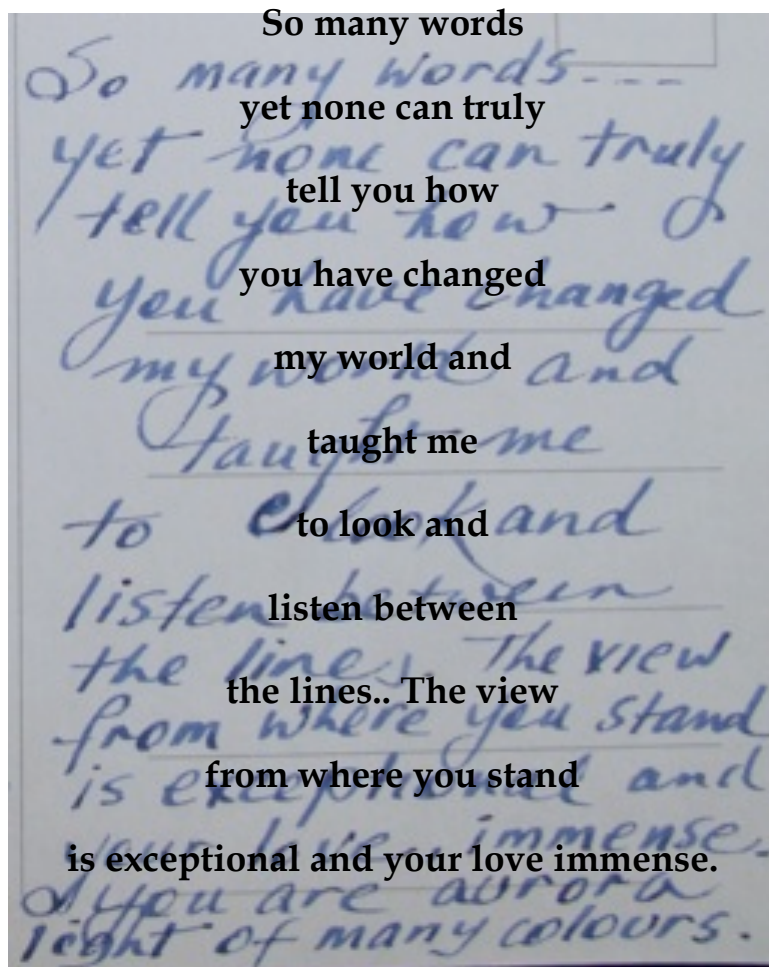 So many words
yet none can truly
tell you how
you have changed
my world and
taught me
to look and
listen between
the lines.. The view
from where you stand
is exceptional and your love immense.
So many words....
yet none can truly
tell you how
you have changed
my world and
taught me
to look and
listen between
the lines. The view
from where you stand
is exceptional and
your love immense.
you are aurora
light of many colours.